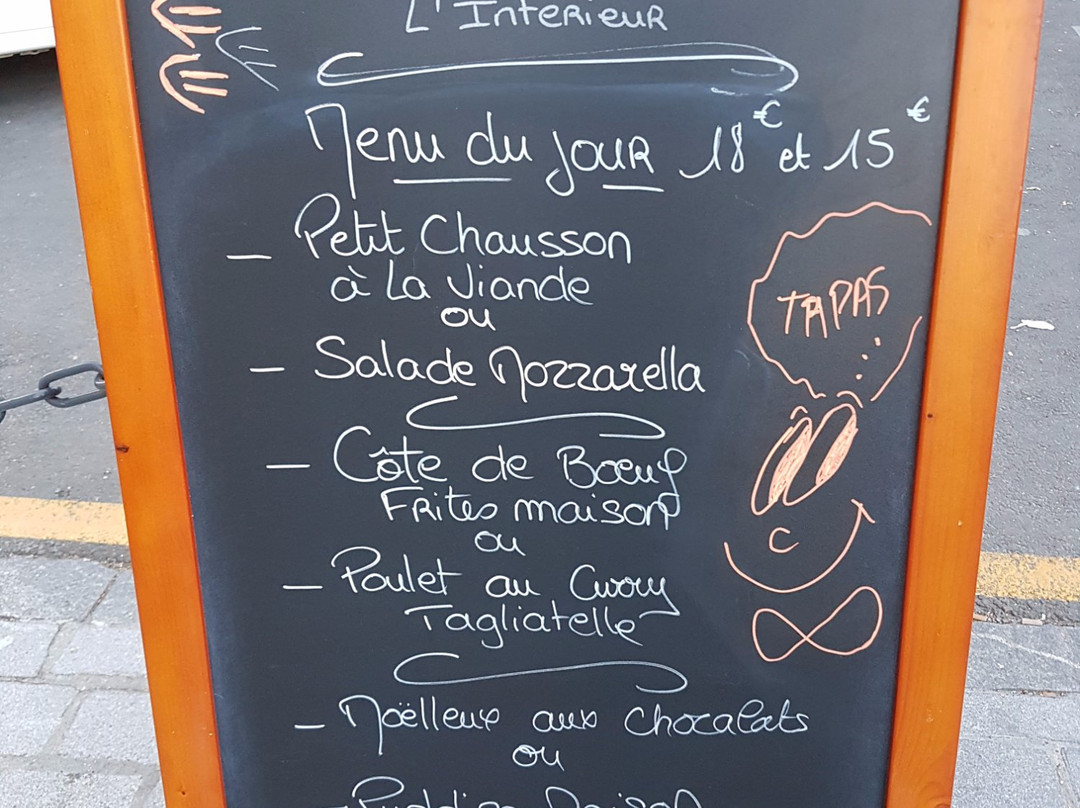 L'Interieur
Menu du jour 18€ et 15€
– Petit Chausson
à La Viande
ou
TAPAS
– Salade Mozzarella
– Côte de Boeuf
Frites maison
ou
– Poulet au Curry
Tagliatelle
– Moëlleux aux Chocolats
ou
– Pudding